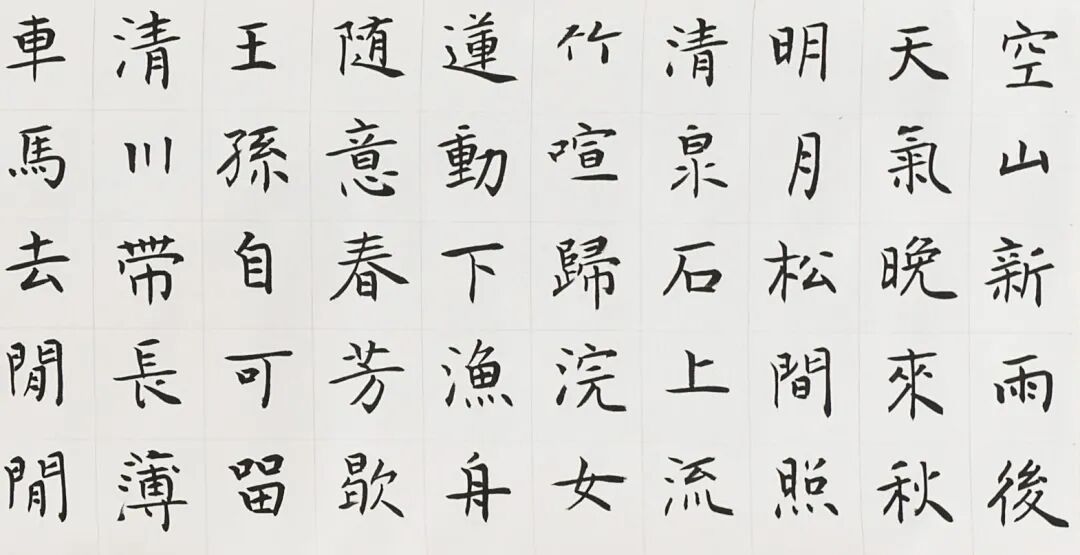 空山新雨後
天氣晚來秋
明月松間照
清泉石上流
竹喧歸浣女
蓮動下漁舟
随意春芳歇
王孫自可留
清川帶長薄
車馬去閒閒